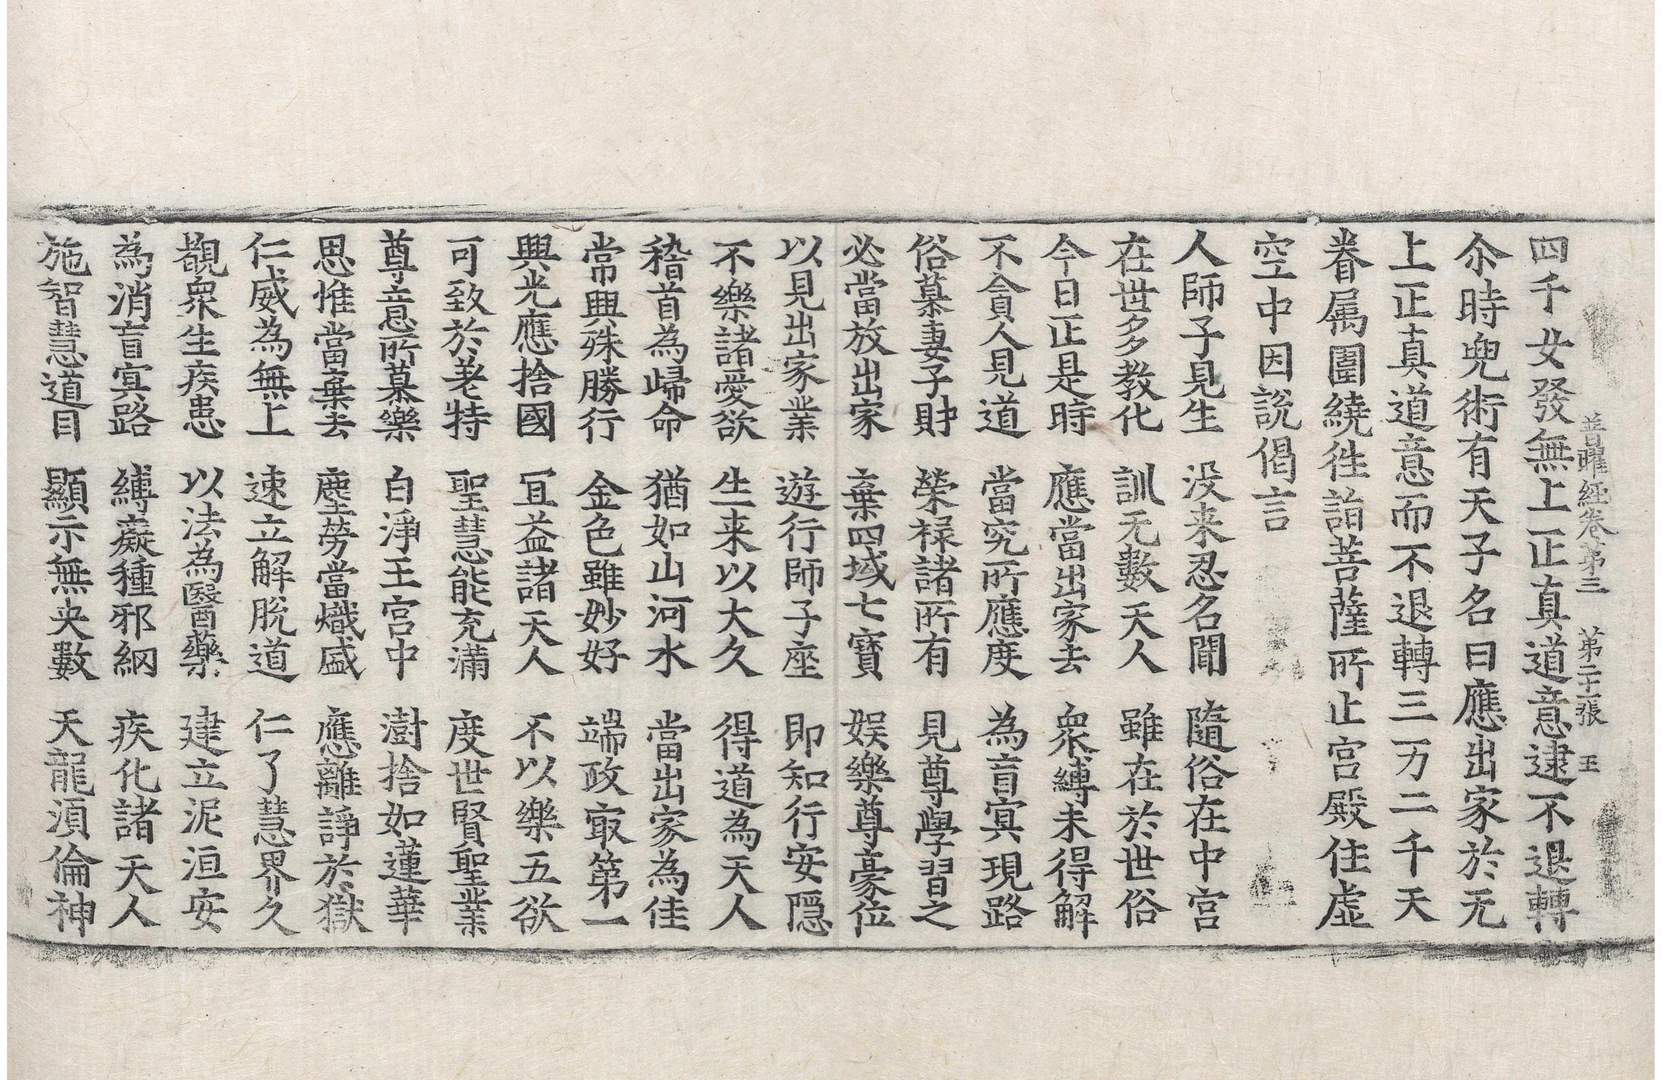 普曜經卷第三 第二十張 王
四千女發無上正真道意逮不退轉
尒時兜術有天子名曰應出家於无
上正真道意而不退轉三万二千天
眷属圍繞徃詣菩薩所止宮殿住虛
空中因說偈言
人師子見生 没来忍名聞 隨俗在中宮
在世多教化 訓无數天人 雖在於世俗
今日正是時 應當出家去 衆縛未得解
不貪人見道 當究所應度 為盲㝠現路
俗慕妻子財 榮禄諸所有 見尊學習之
必當放出家 棄四域七寶 娱樂尊豪位
以見出家業 遊行師子座 即知行安隠
不樂諸愛欲 生来以大久 得道為天人
稽首為歸命 猶如山河水 當出家為佳
常興殊勝行 金色雖妙好 端政㝡第一
興光應捨國 冝益諸天人 不以樂五欲
可致於老特 聖慧能充滿 度世賢聖業
尊意所慕樂 白淨王宮中 澍捨如蓮華
思惟當棄去 塵勞當熾盛 應離諍於獄
仁威為無上 速立解脫道 仁了慧界久
覩衆生疾患 以法為醫藥 建立泥洹安
為消盲㝠路 縛癡種邪網 疾化諸天人
施智慧道目 顯示無央數 天龍湏倫神